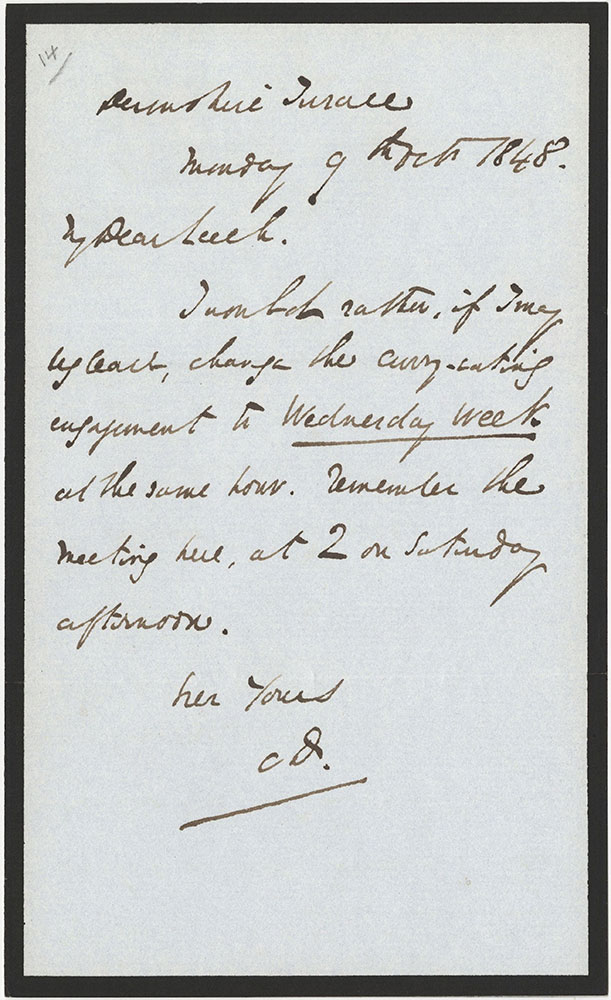 14/
Devonshire Terrace
Monday 9th Octr 1848.
My Dear Leech.
I would rather, if I may
, change the curry-eating
engagement to Wednesday Week
at the same hour. Remember the
meeting here, at 2 on Saturday
afternoon.
Ever Yours
CD.